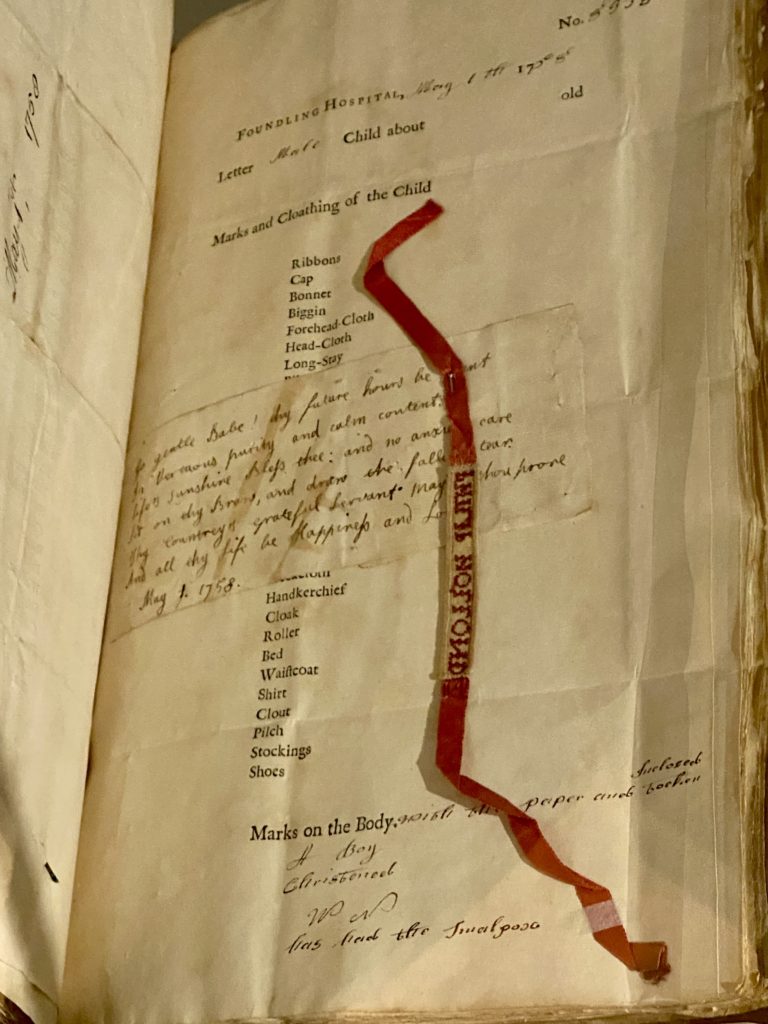 May 1st, 1758
No.
FOUNDLING HOSPITAL, May 1 1758
Letter Male Child about old
Marks and Cloathing of the Child
Ribbons
Cap
Bonnet
Biggin
Forehead-Cloth
Head-Cloth
Long-Stay
gentle Babe! thy future hours be
In Vertuous purity and calm content.
Life's sunshine bless thee: and no care
Sit on thy Brow, and draw the tear.
Thy Countrey's grateful Servant May thou prove
And all thy Life be Happiness and
May 1. 1758.
Handkerchief
Cloak
Roller
Bed
Waistcoat
Shirt
Clout
Pilch
Stockings
Shoes
PHILIP HOLLOND
Marks on the Body. with the paper and token Inclosed
A Boy
Christened
has had the Smalpox